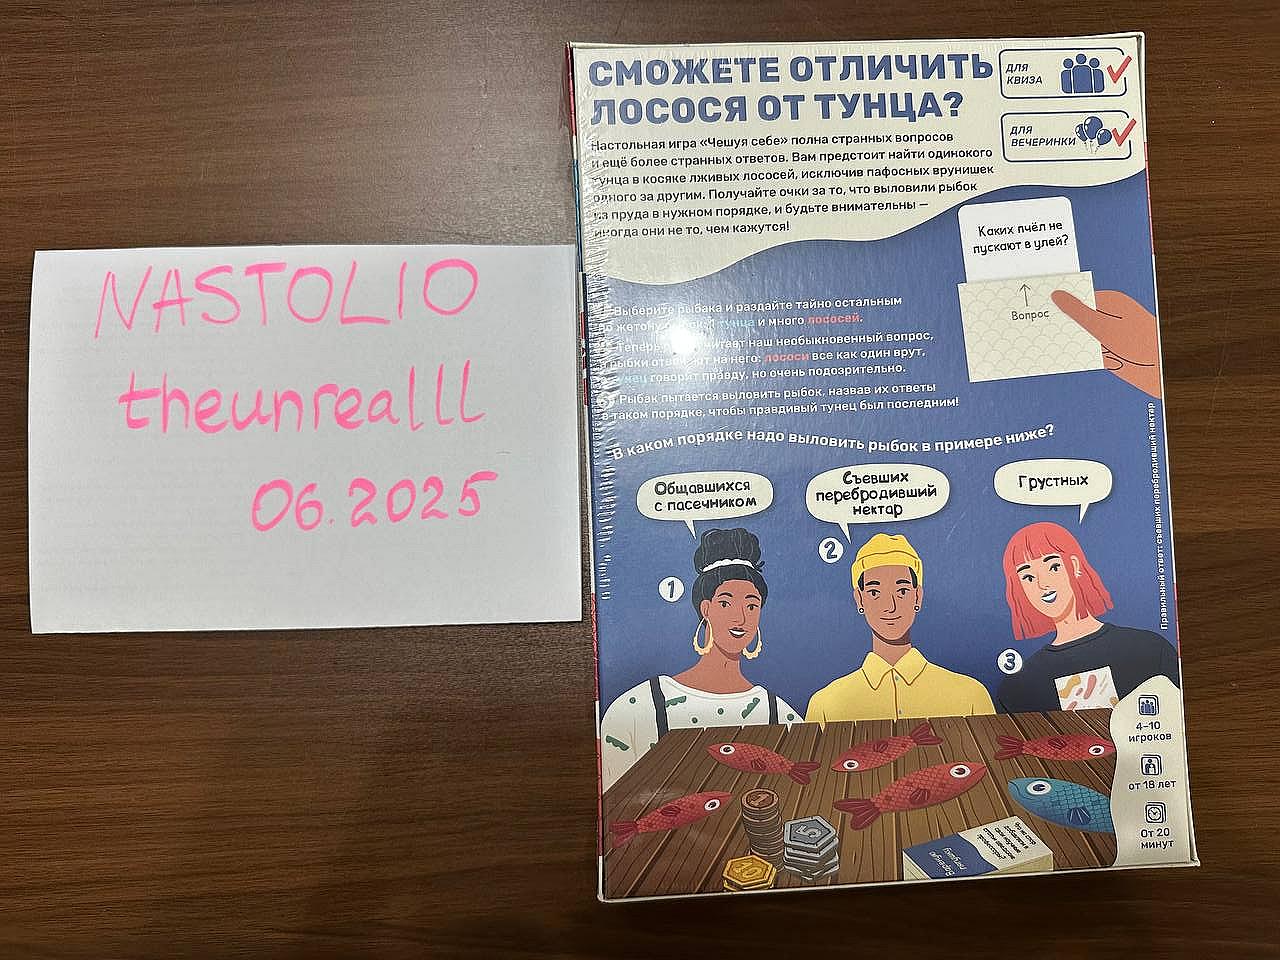 NASTOLIO
theunrealll
06.2025
СМОЖЕТЕ ОТЛИЧИТЬ
ЛОСОСЯ ОТ ТУНЦА?
ДЛЯ
КВИЗА
ДЛЯ
ВЕЧЕРИНКИ
Настольная игра «Чешуя себе» полна странных вопросов
и ещё более странных ответов. Вам предстоит найти одинокого
тунца в косяке лживых лососей, исключив пафосных врунишек
одного за другим. Получайте очки за то, что выловили рыбок
из пруда в нужном порядке, и будьте внимательны —
иногда они не то, чем кажутся!
Каких пчёл не
пускают в улей?
Вопрос
Выберите рыбака и раздайте тайно остальным
по жетону тунца и много лососей.
Теперь наш необыкновенный вопрос,
рыбки на него: лососи все как один врут,
тунец говорит правду, но очень подозрительно.
Рыбак пытается выловить рыбок, назвав их ответы
в таком порядке, чтобы правдивый тунец был последним!
В каком порядке надо выловить рыбок в примере ниже?
Общавшихся
с пасечником
Съевших
перебродивший
нектар
Грустных
1
2
3
Правильный ответ: съевших перебродивший нектар
4–10
игроков
от 18 лет
От 20
минут
1
5
10